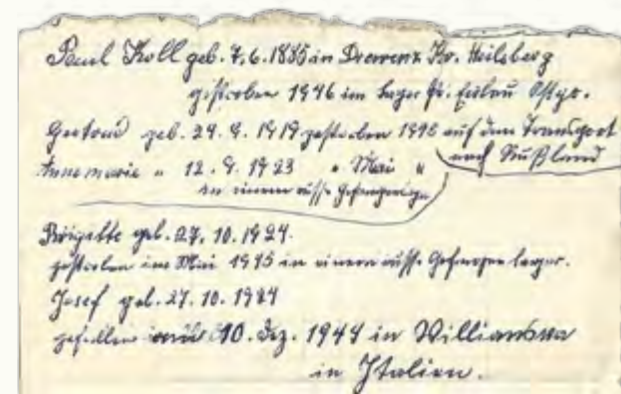 Paul Koll geb. 7.6.1885 in Drewenz Kr. Heilsberg
gestorben 1946 im Lager Pr. Eylau Ostpr.
Gertrud geb. 24.9.1919 gestorben 1945 auf dem Transport
nach Rußland
Annemarie " 12.9.1923 " Mai "
in einem russ. Gefangenlager
Brigitte geb. 27.10.1924.
gestorben im Mai 1945 in einem russ. Gefangenenlager.
Josef geb. 27.10.1924
gefallen 10. Dez. 1944 in
in Italien.